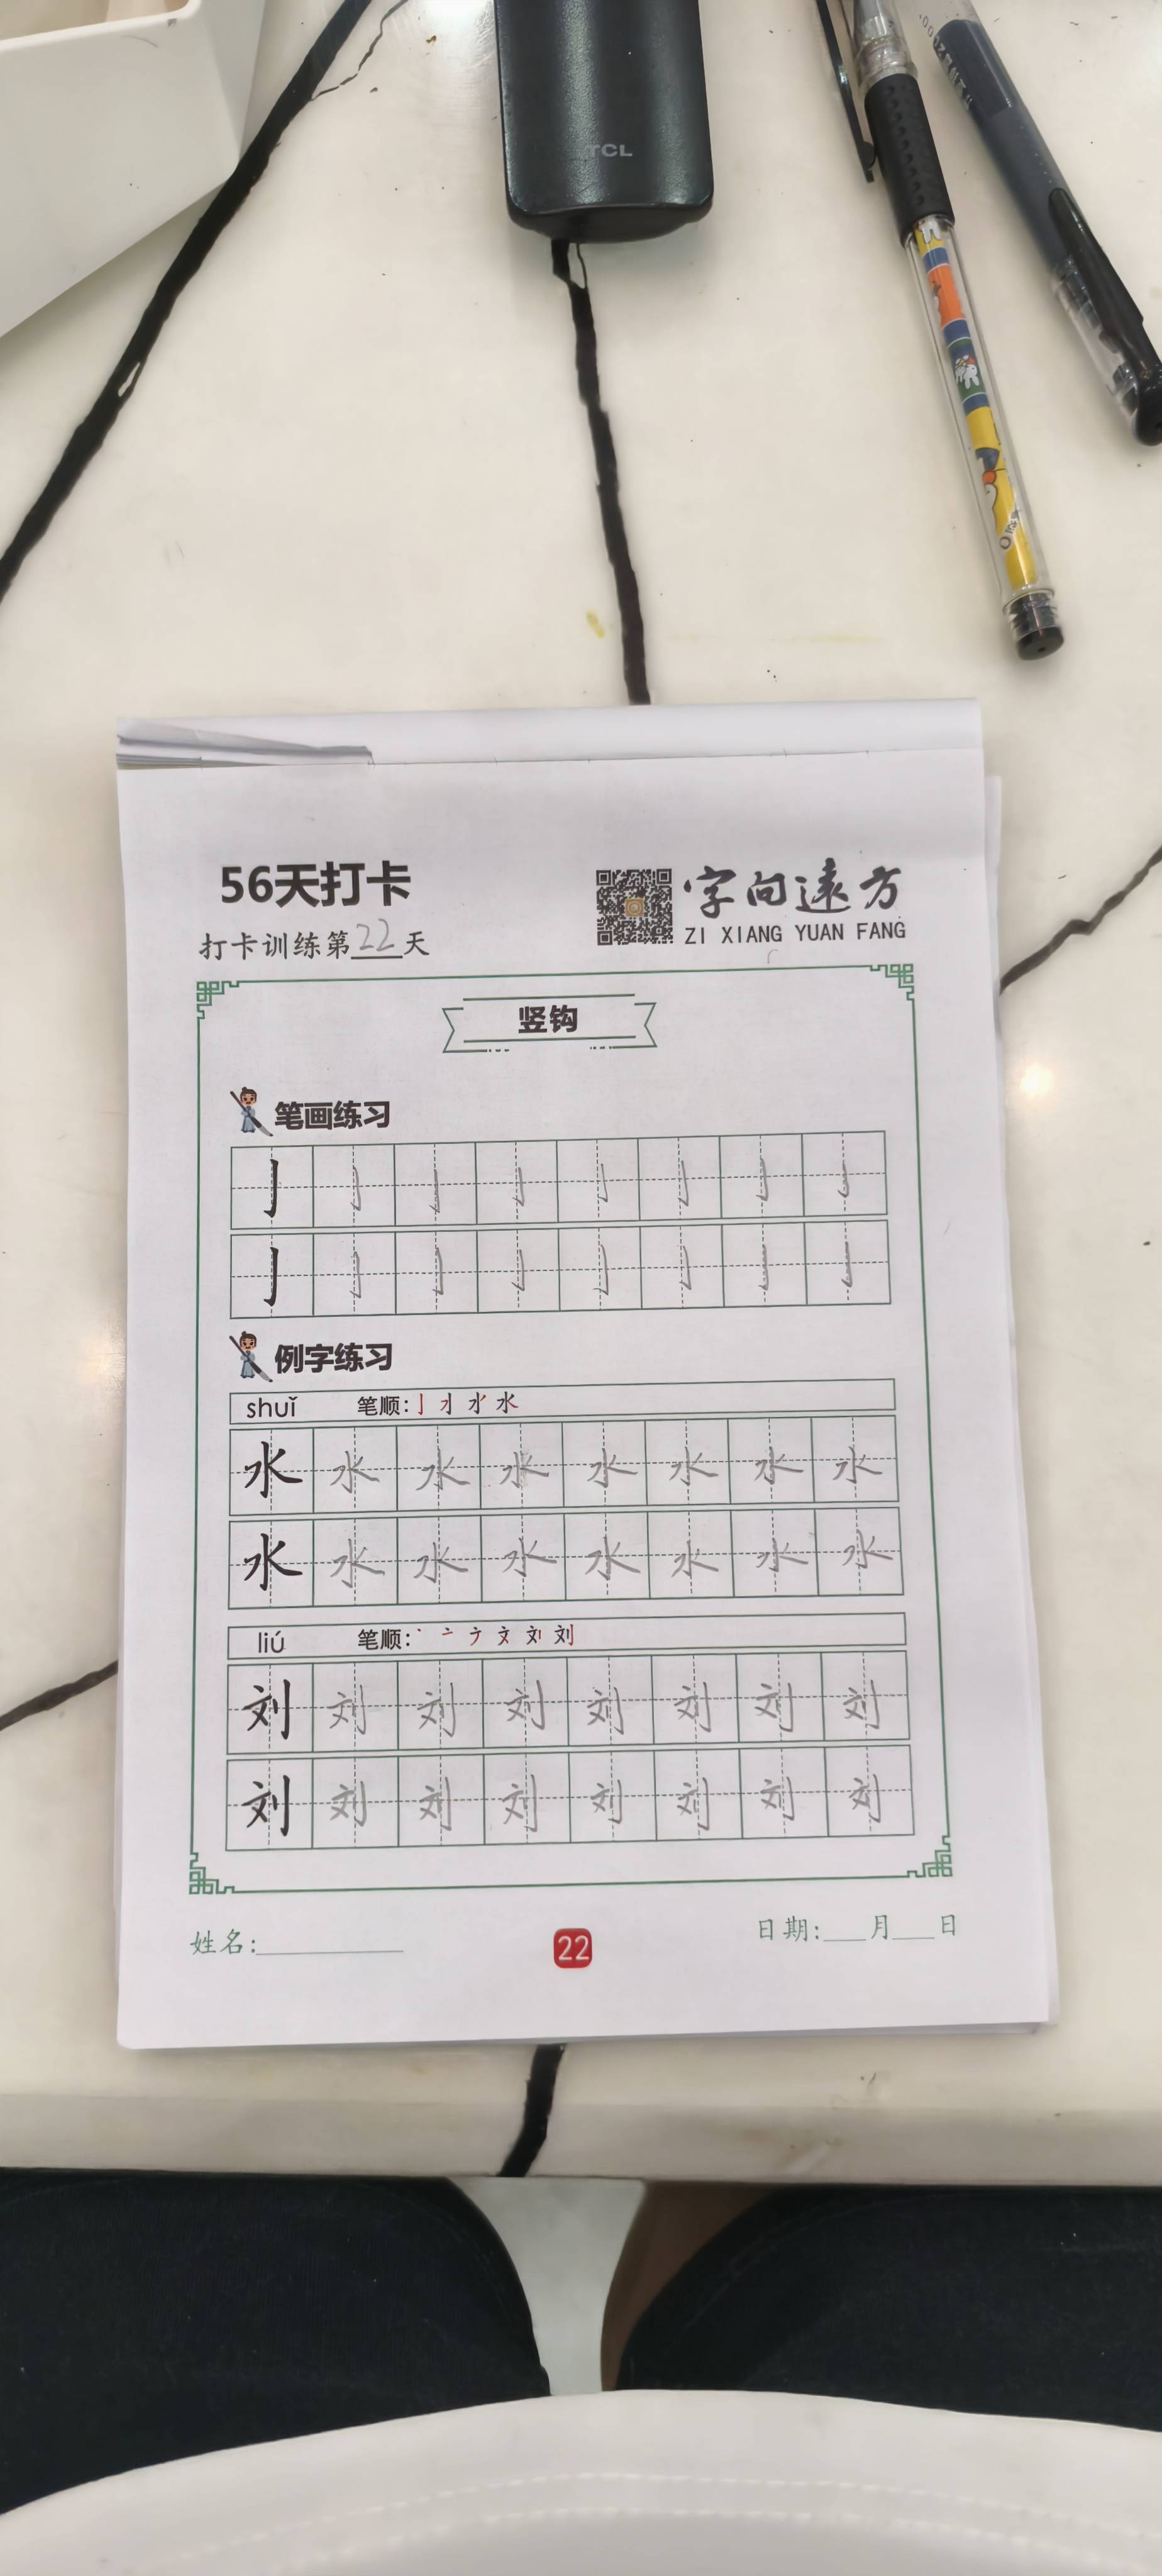 TCL
56天打卡
打卡训练第22天
字向遠方
ZI XIANG YUAN FANG
竖钩
笔画练习
亅 亅 亅 亅 亅 亅 亅 亅
亅 亅 亅 亅 亅 亅 亅 亅
例字练习
shuǐ 笔顺:
水 水 水 水 水 水 水 水
水 水 水 水 水 水 水 水
liú 笔顺:
刘 刘 刘 刘 刘 刘 刘 刘
刘 刘 刘 刘 刘 刘 刘 刘
姓名:
22
日期:___月___日